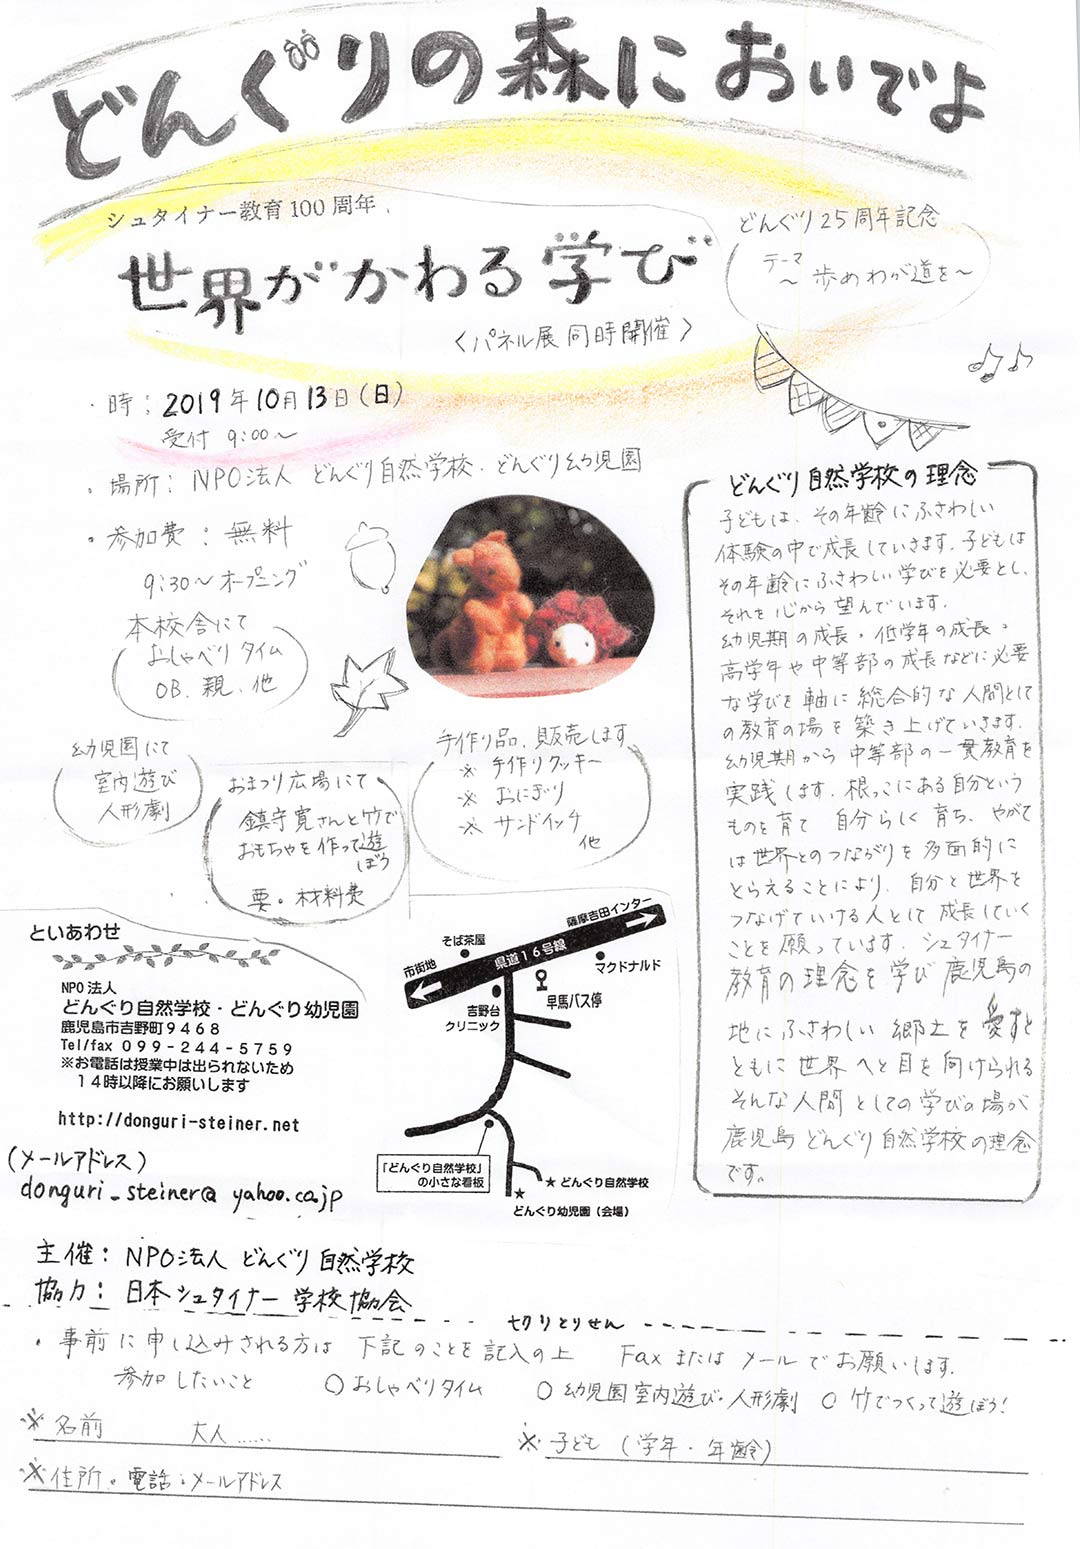 どんぐりの森においでよ
シュタイナー教育100周年、
世界がかわる学び
〈パネル展同時開催〉
どんぐり25周年記念
テーマ
～歩めわが道を～
・時：2019年10月13日（日）
受付 9:00～
・場所：NPO法人 どんぐり自然学校・どんぐり幼児園
・参加費：無料
9:30～オープニング
本校舎にて
おしゃべりタイム
OB、親、他
幼児園にて
室内遊び
人形劇
おまつり広場にて
鎮守寛さんと竹で
おもちゃを作って遊
ぼう
要・材料費
手作り品、販売します
※ 手作りクッキー
※ おにぎり
※ サンドイッチ
他
どんぐり自然学校の理念
子どもは、その年齢にふさわしい
体験の中で成長していきます。子どもは
その年齢にふさわしい学びを必要とし、
それを心から望んでいます。
幼児期の成長・低学年の成長・
高学年や中等部の成長などに必要
な学びを軸に総合的な人間として
の教育の場を築き上げていきます。
幼児期から中等部の一貫教育を
実践します。根っこにある自分という
ものを育て 自分らしく育ち、やがて
は世界とのつながりを多面的に
とらえることにより、自分と世界を
つなげていける人として成長していく
ことを願っています。シュタイナー
教育の理念を学び鹿児島の
地にふさわしい郷土を愛すと
ともに世界へと目を向けられる
そんな人間としての学びの場が
鹿児島どんぐり自然学校の理念
です。
といあわせ
NPO法人
どんぐり自然学校・どんぐり幼児園
鹿児島市吉野町９４６８
Tel/fax ０９９-２４４-５７５９
※お電話は授業中は出られないため
１４時以降にお願いします
http://donguri-steiner.net
（メールアドレス）
donguri_steiner@yahoo.co.jp
薩摩吉田インター
そば茶屋
県道１６号線
市街地
マクドナルド
吉野台
クリニック
早馬バス停
「どんぐり自然学校」
の小さな看板
★ どんぐり自然学校
★
どんぐり幼児園（会場）
主催：NPO法人 どんぐり自然学校
協力：日本シュタイナー学校協会
切りとりせん
・事前に申し込みされる方は 下記のことを記入の上 Faxまたはメールでお願いします。
参加したいこと ○おしゃべりタイム ○幼児園室内遊び・人形劇 ○竹でつくって遊ぼう！
※名前 大人……
※子ども（学年・年齢）
※住所・電話・メールアドレス